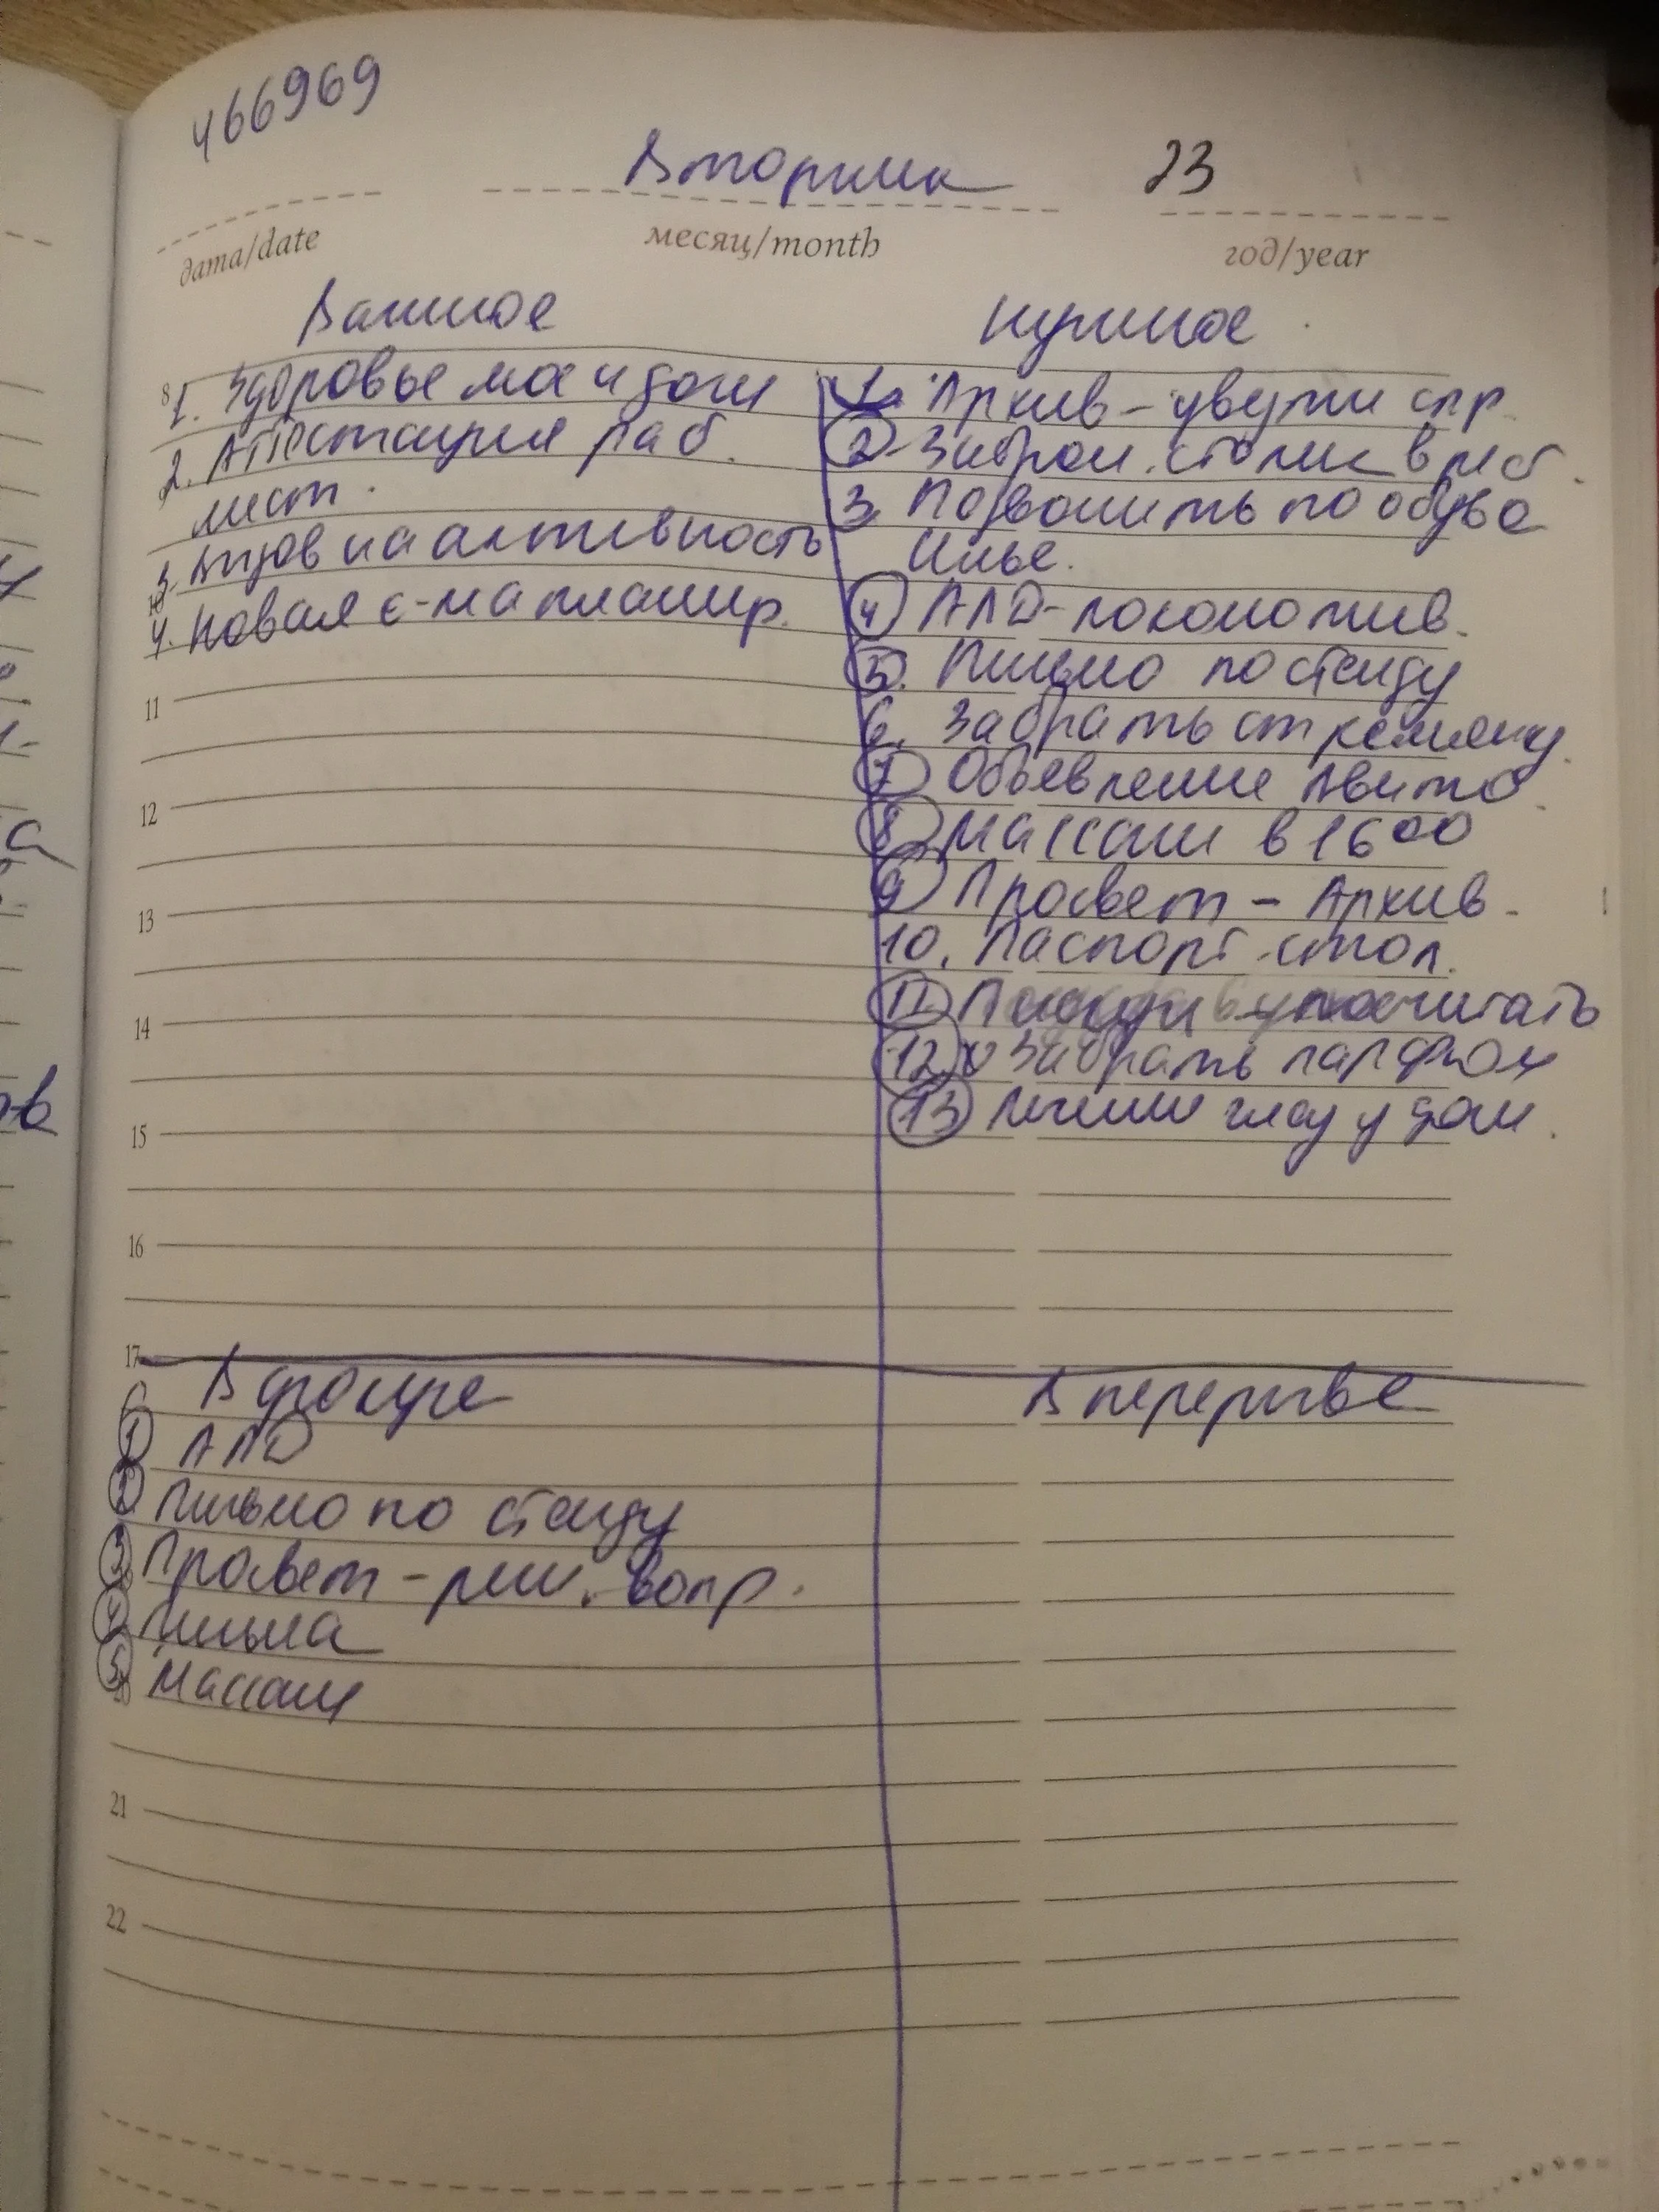 466969
Вторник 23
дата/date
месяц/month
год/year
Важное
8
1. Здоровье мое и дочи
2. Аттестация раб.
мест.
3. на активность
4. Новая с-ма планир.
11
12
13
14
15
16
17
Нужное
1. Архив - спр
2. Заброн. столик в
3. Позвонить по обуве
Илье.
4 АЛД- локомотив.
5. Письмо по стенду
6. Забрать от
7 Объевление Авито
8 Массаж в 16 00
9 Просвет - Архив
10. Паспорт. стол.
11 посчитать
12. Забрать
13 у дочи.
В фокусе
1 АЛД
2 Письмо по стенду
3. Просвет - реш. вопр.
4. Письма
5. Массаж
21
22
В перерыве